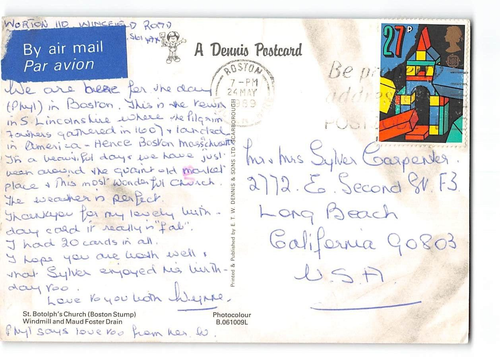 WORTON 110 WINGFIELD ROAD
By air mail
Par avion
A Dennis Postcard
BOSTON
7 - PM
24 MAY
1989
Be pro
addres
POST
27P
We are here for the day
(Phyl) in Boston. This is the town
in S Lincolnshire where the Pilgrim
Fathers gathered in 1607 & landed
in America - Hence Boston Massachusetts
It's a beautiful day & we have just
been around the quaint old market
place & this most wonderful church.
The weather is perfect.
Thankyou for my lovely birth-
day card it really is "fab".
I had 20 cards in all.
I hope you are both well &
that Sylker enjoyed his birth-
day too.
Love to you both Wynne.
Mr & Mrs Sylker Carpenter.
2772. E. Second St. F3
Long Beach
California 90803
U.S.A.
Printed & Published by E. T. W. DENNIS & SONS LTD SCARBOROUGH
St. Botolph's Church (Boston Stump)
Windmill and Maud Foster Drain
Photocolour
B.061009L
Phyl says love too from her. W.